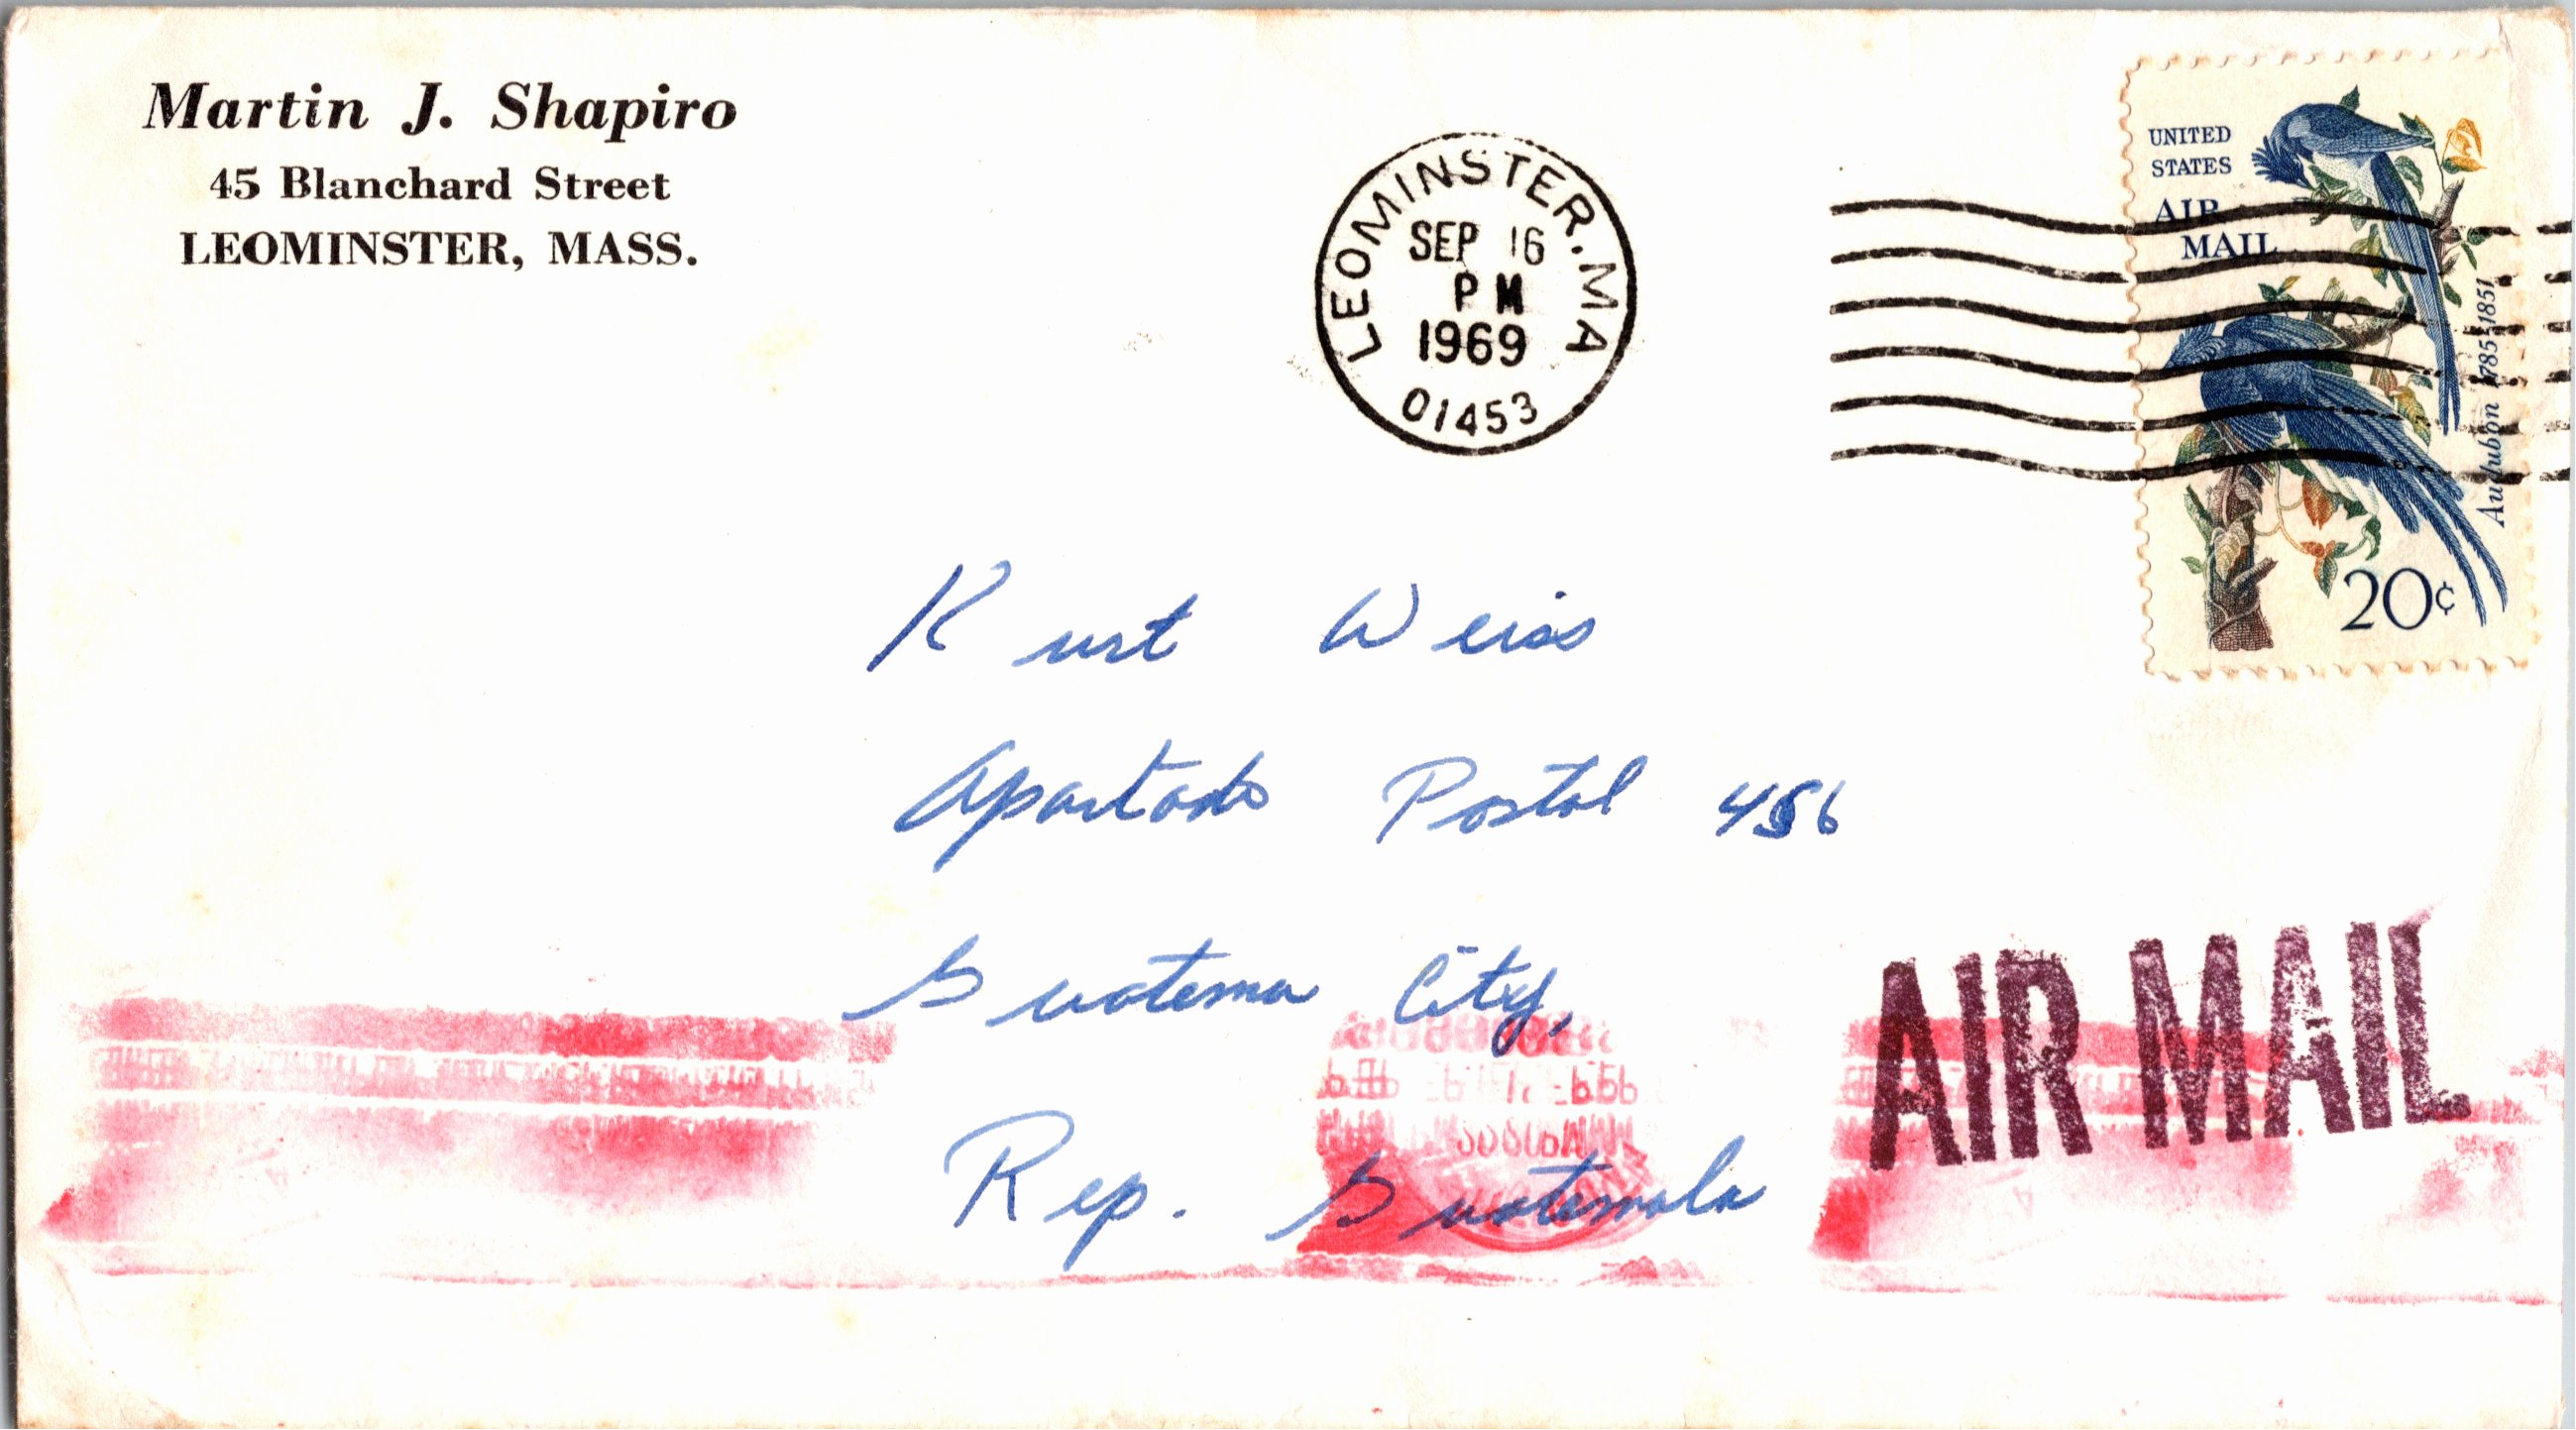 Martin J. Shapiro
45 Blanchard Street
LEOMINSTER, MASS.
LEOMINSTER, MA
SEP 16
PM
1969
01453
UNITED
STATES
AIR
MAIL
Audubon 1785-1851
20¢
Kurt Weiss
Apartado Postal 456
Guatema City,
Rep. Guatemala
AIR MAIL